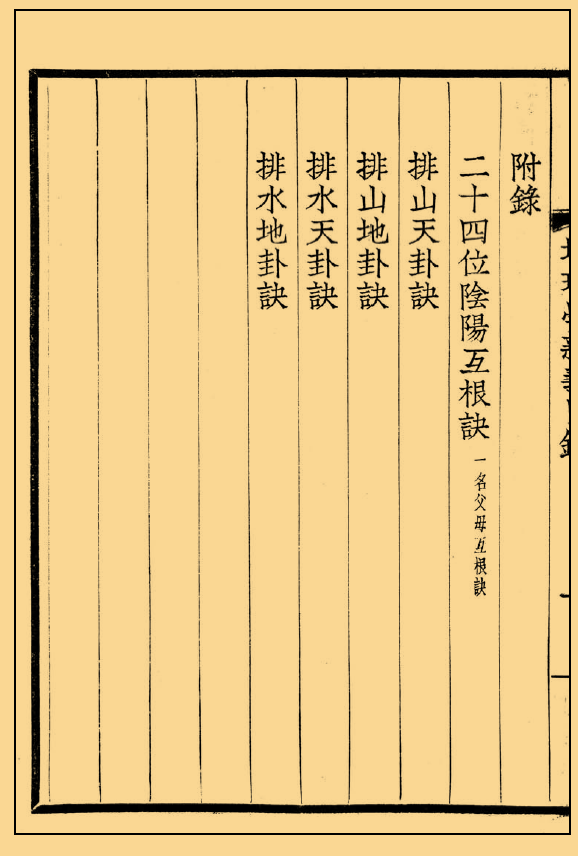 附錄
二十四位陰陽互根訣 一名父母互根訣
排山天卦訣
排山地卦訣
排水天卦訣
排水地卦訣